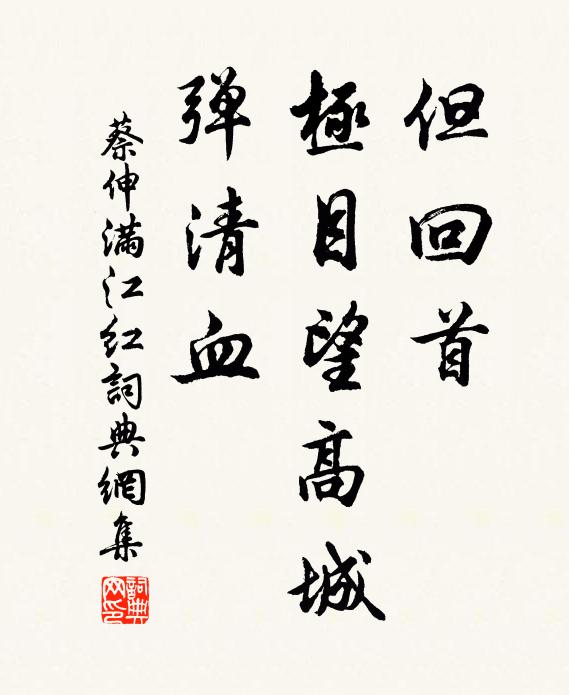 但回首
極目望高城
弹清血
蔡伸滿江红詞典網集
詞典网印